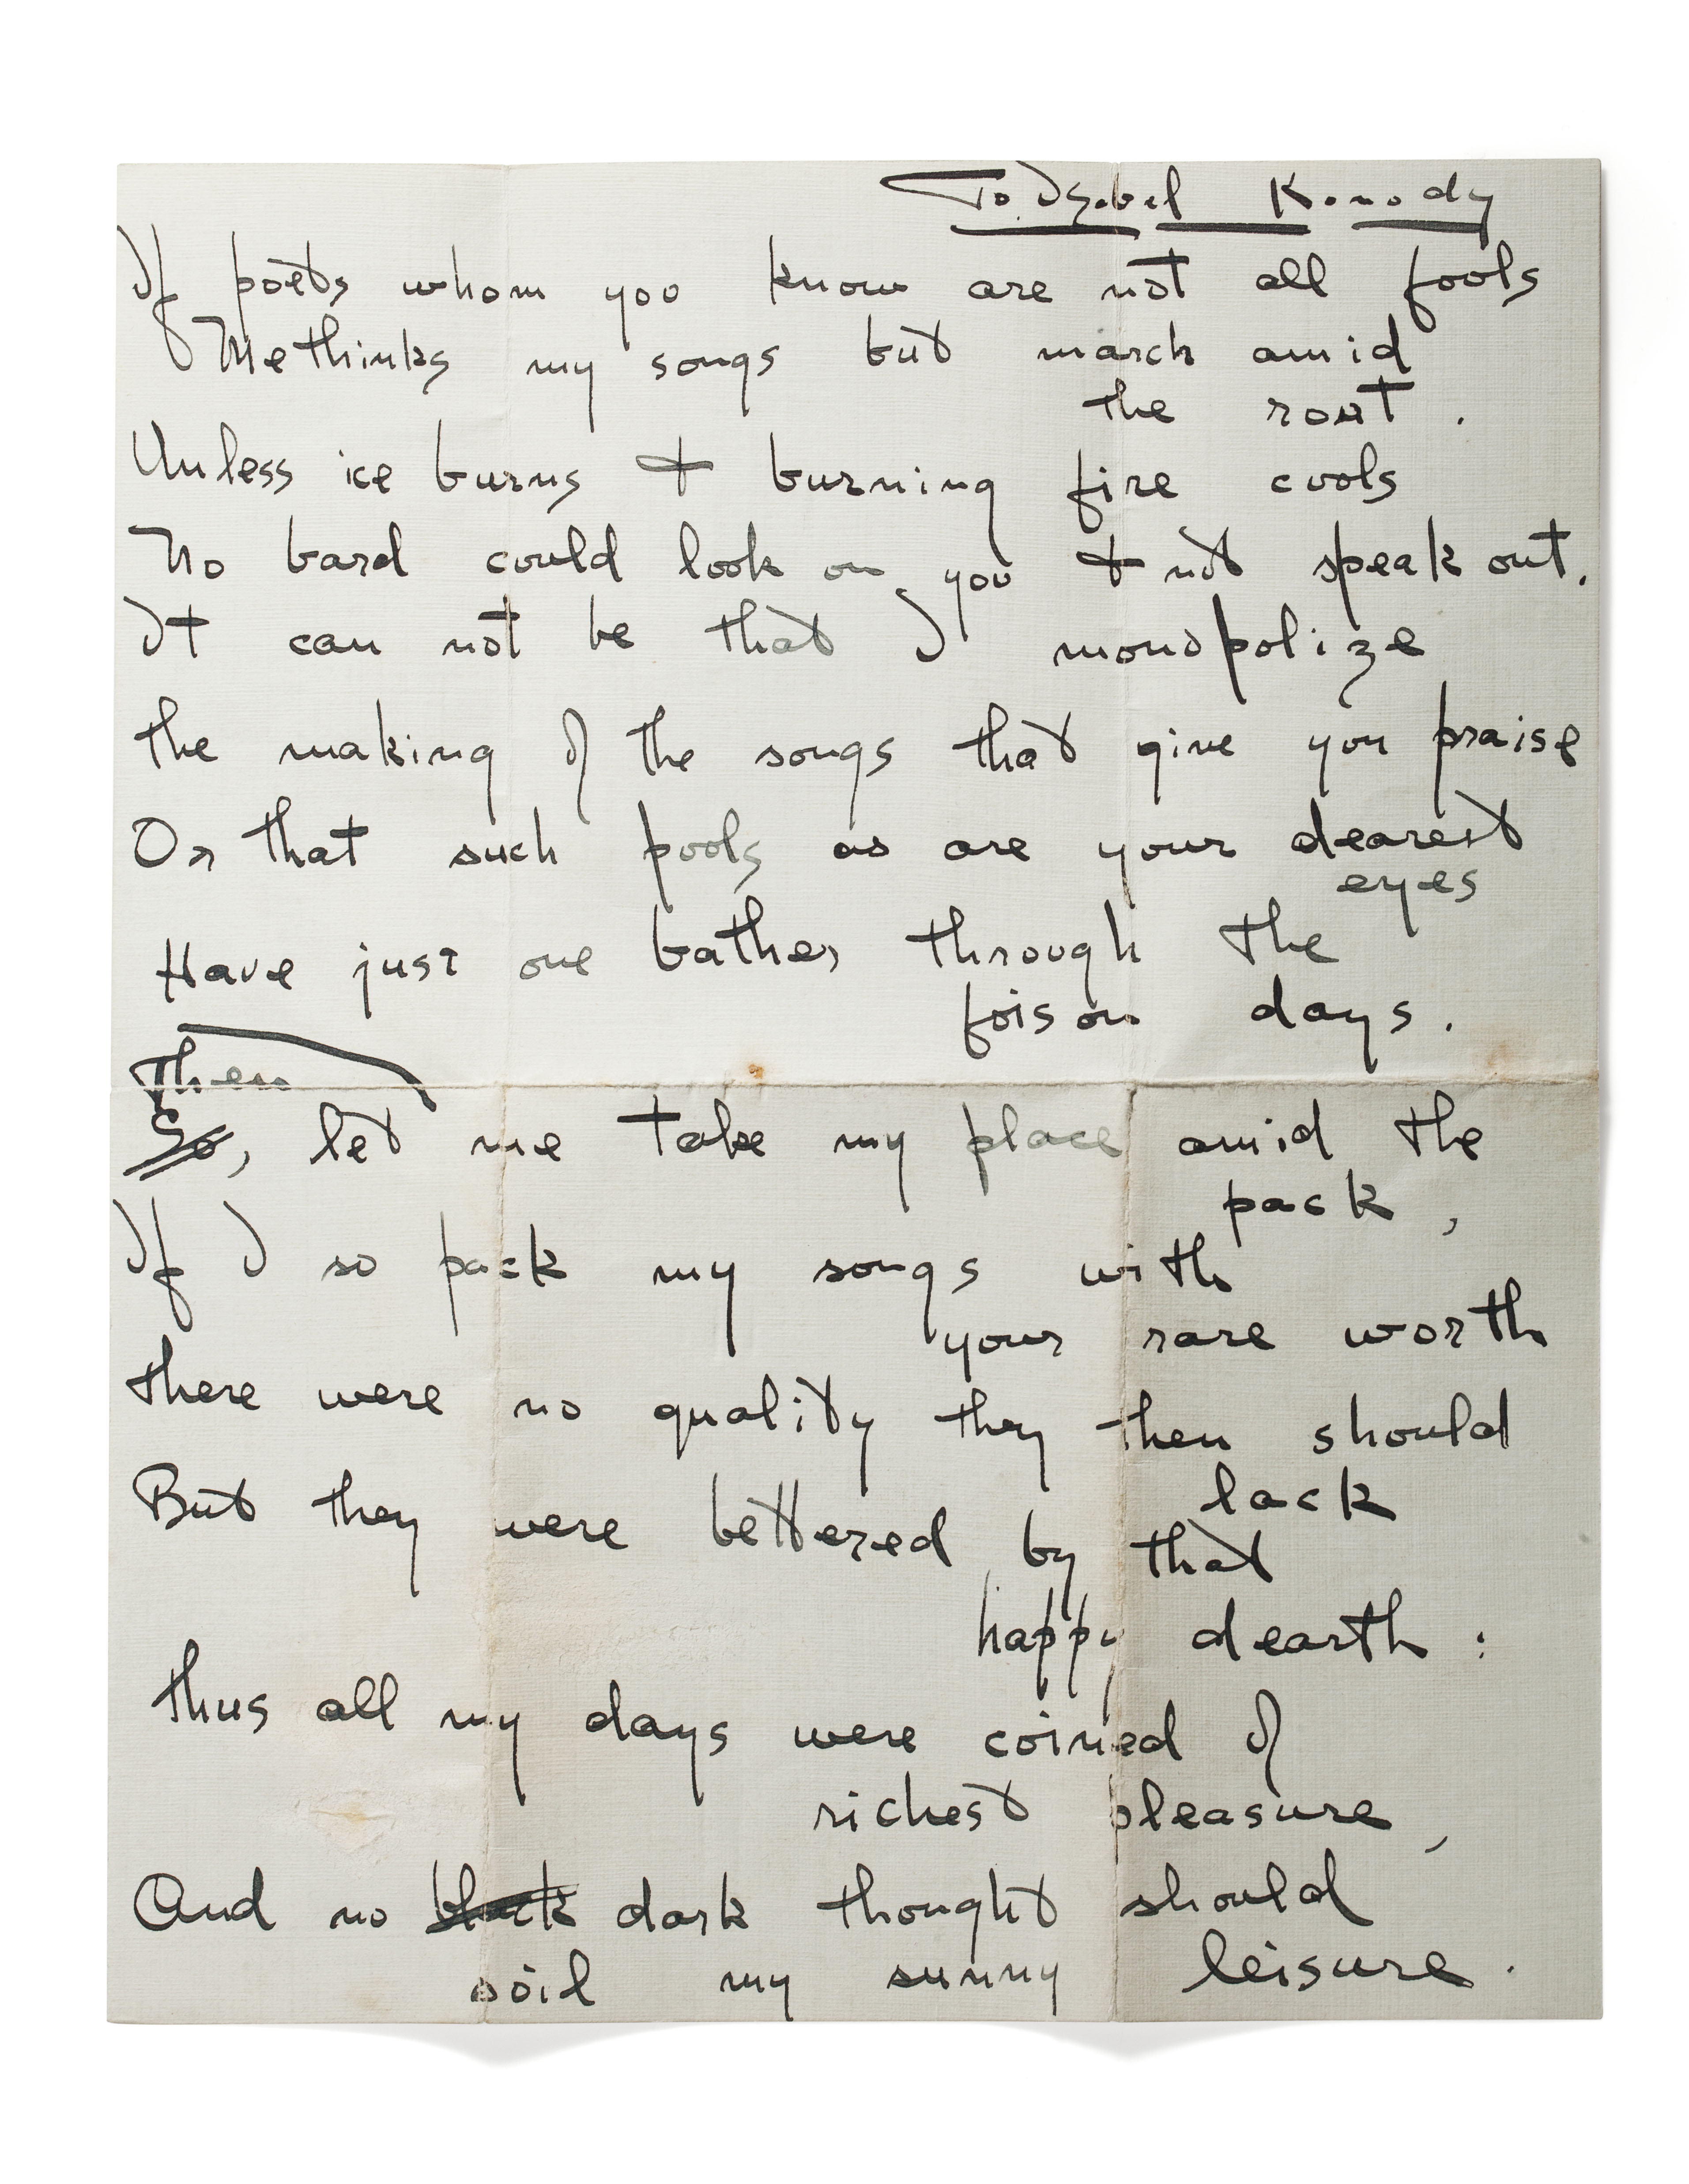 To Isobel Konody
If poets whom you know are not all fools
Methinks my songs but march amid
the rout.
Unless ice burns & burning fire cools
No bard could look on you & not speak out.
It can not be that I monopolize
the making of the songs that give you praise
Or that such pools as are your dearest
eyes
Have just one bather through the
foison days.
Then
So, let me take my place amid the
pack,
If I so pack my songs with
your rare worth
there were no quality they then should
lack
But they were bettered by that
happy dearth:
thus all my days were coined of
richest pleasure,
And no black dark thought should
soil my sunny leisure.